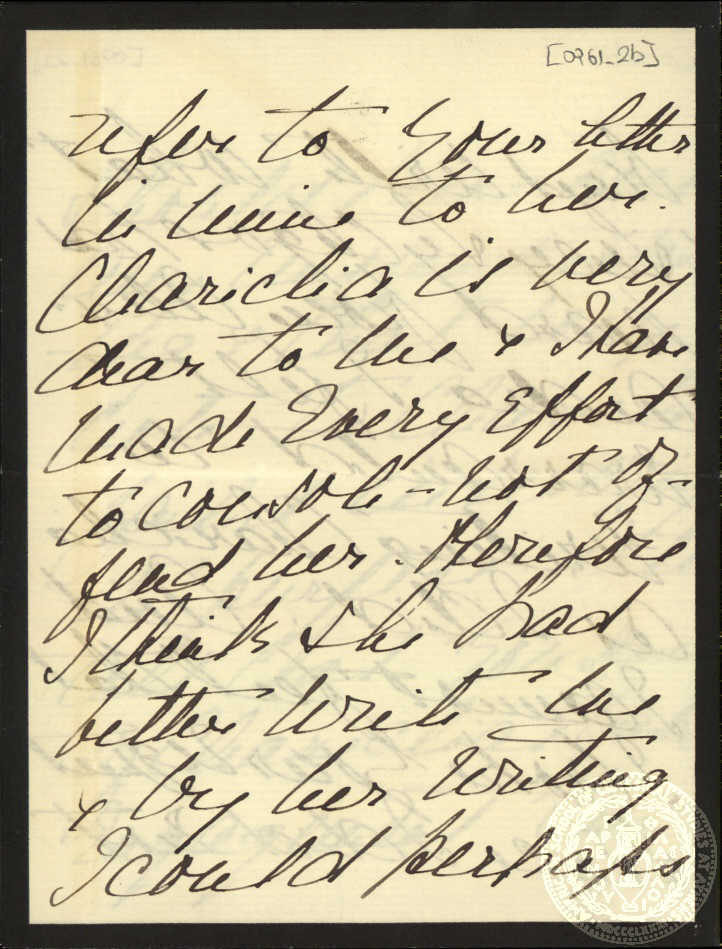 [0961_2b]
refer to your letter
in mine to her.
Chariclia is very
dear to me & I have
made Every Effort
to console - not of-
fend her. Therefore
I think she had
better write me
& by her writing
I could perhaps